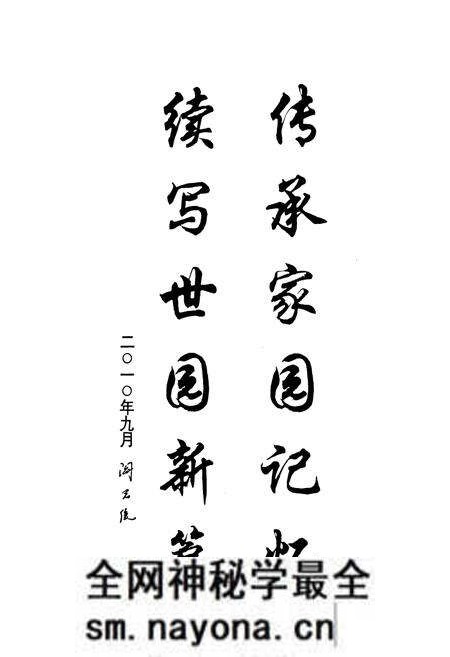 传承家园记
续写世园新
二〇一〇年九月
全网神秘学最全
sm.nayona.cn